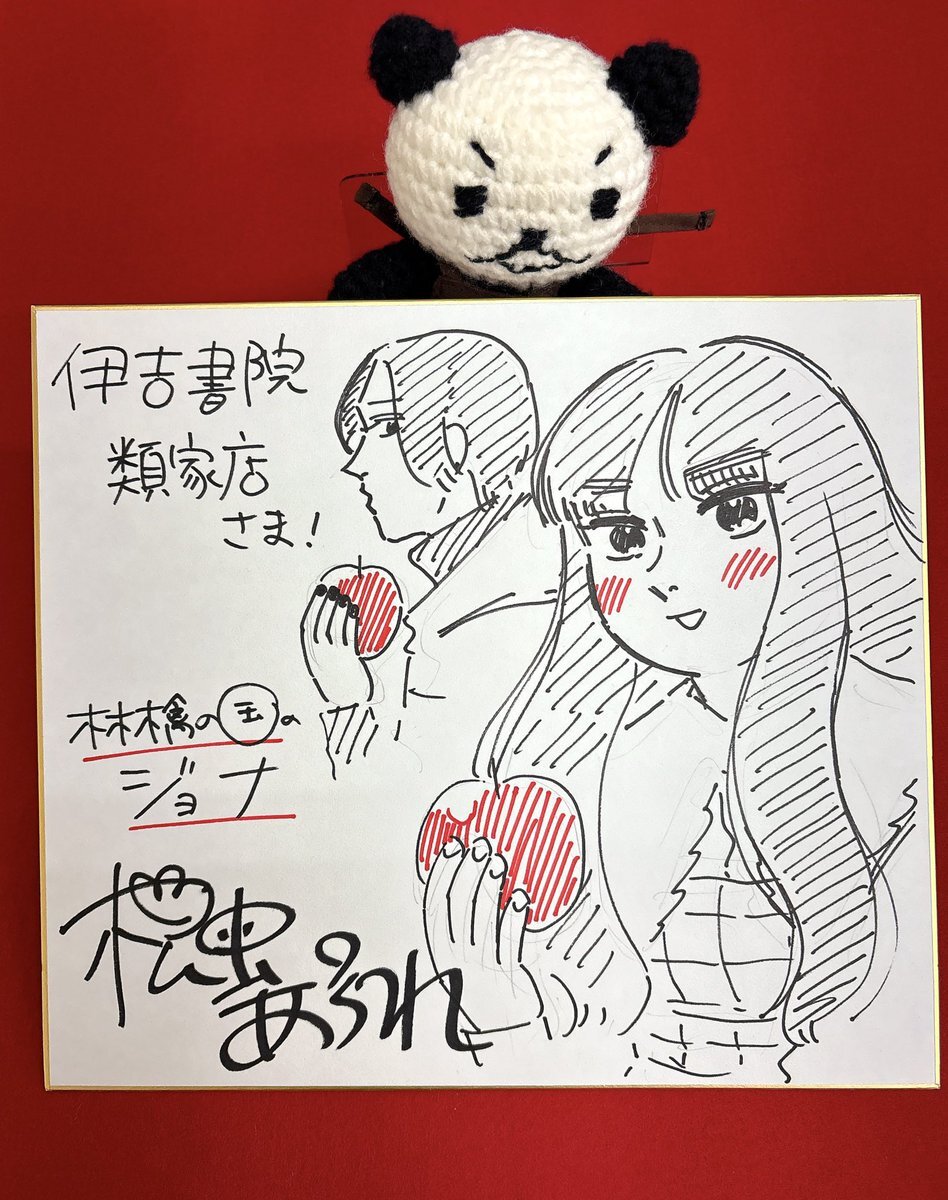 伊吉書院
類家店
さま！
林檎の国の
ジョナ
松虫
あられ